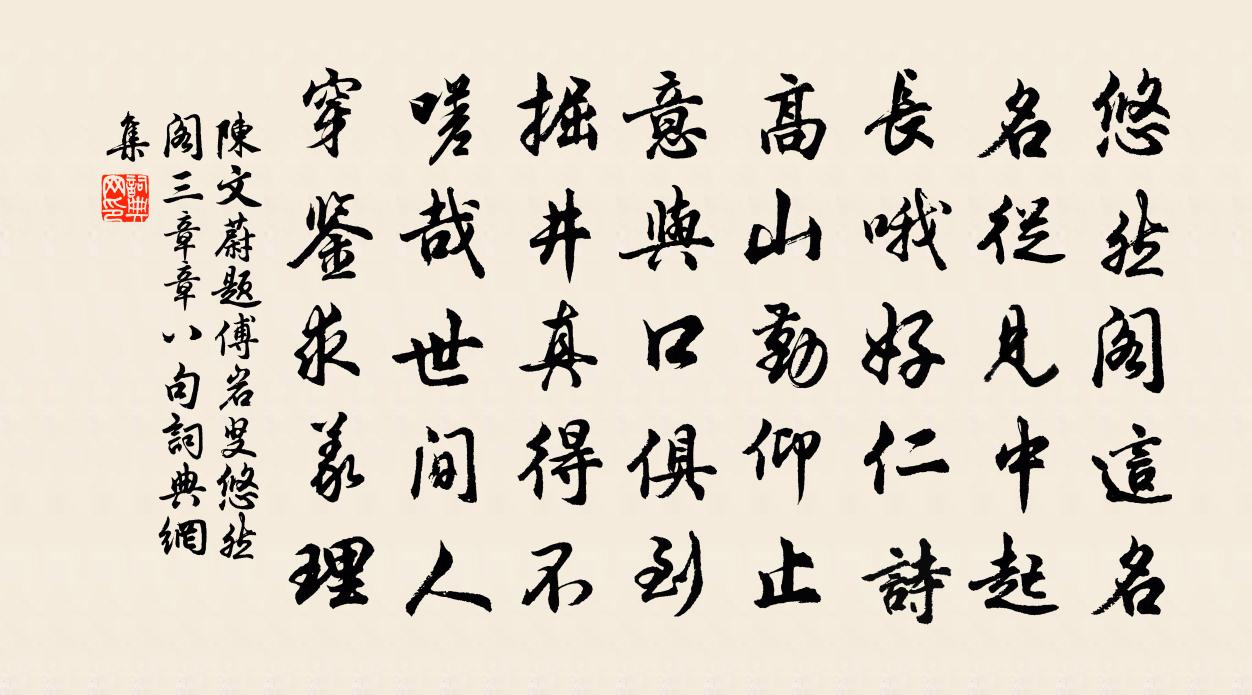 悠然阁這名
名從見中起
長哦好仁詩
高山勤仰止
意與口俱到
掘井真得不
嗟哉世间人
穿鉴求義理
陳文蔚題傅岩叟悠然
阁三章章八句詞典網
集
詞典網印